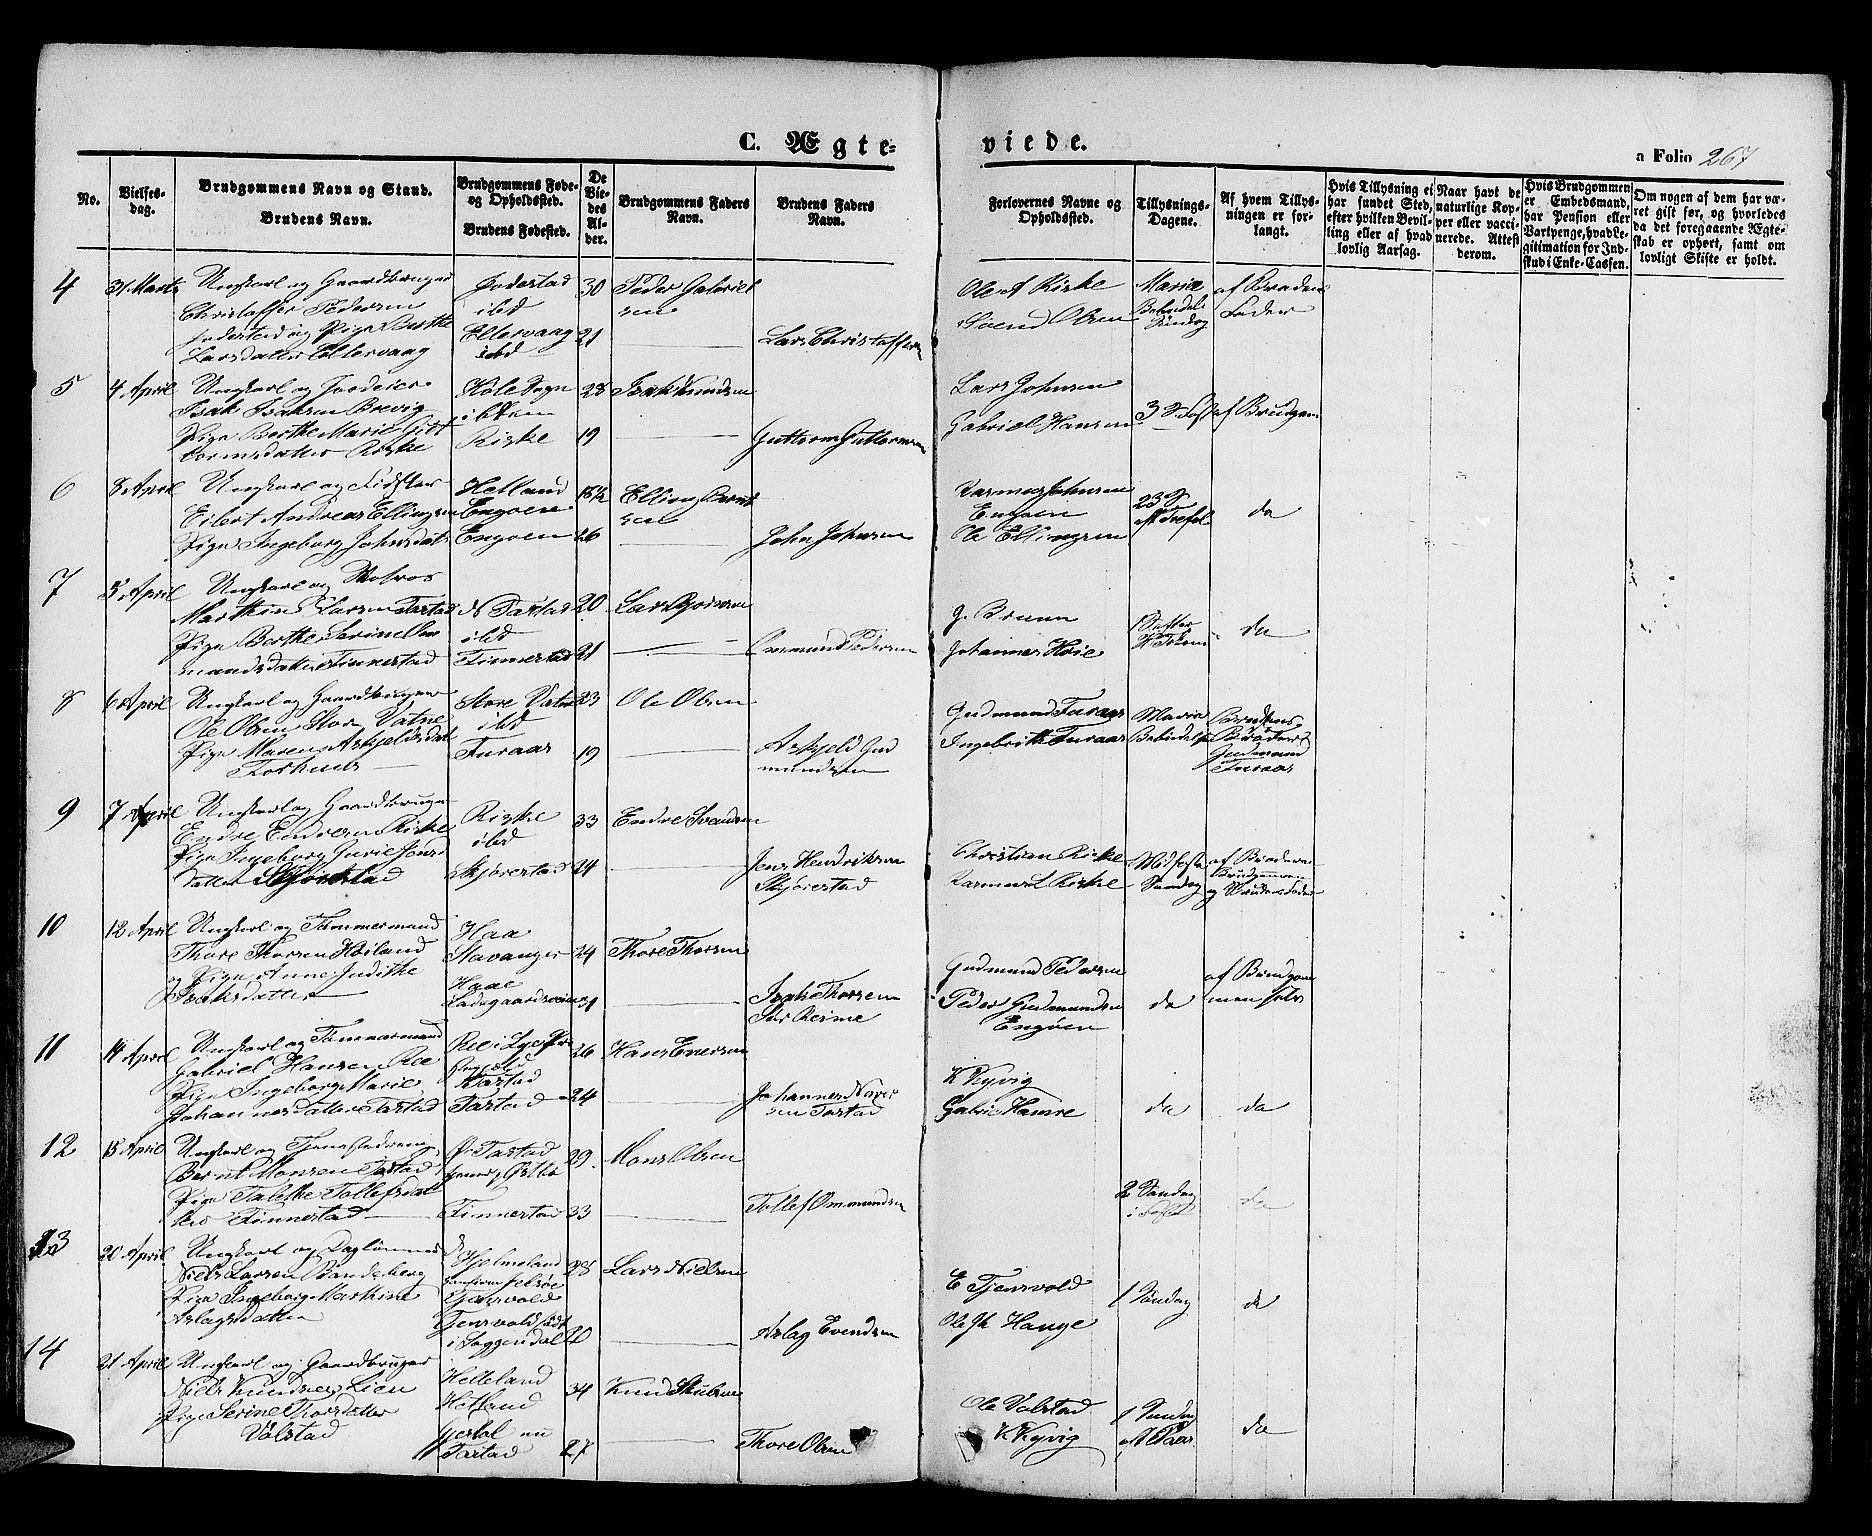 C. Ægte-
viede.
a Folio 267
No.
Vielses-
dag.
Brudgommens Navn og Stand.
Brudens Navn.
Brudgommens Føde-
og Opholdssted.
Brudens Fødested.
De
Vie-
des
Al-
der.
Brudgommens Faders
Navn.
Brudens Faders
Navn.
Forlovernes Navne og
Opholdssted.
Tillysnings-
Dagene.
Af hvem Tillys-
ningen er for-
langt.
Hvis Tillysning ei
har fundet Sted,
efter hvilken Bevil-
ling eller af hvad
lovlig Aarsag.
Naar havt de
naturlige Kop-
per eller vacci-
nerede. Attest
derom.
Hvis Brudgommen
er Embedsmand,
har Pension eller
Vartpenge, hvad Le-
gitimation for Ind-
skud i Enke-Cassen.
Om nogen af dem har væ-
ret gift før, og hvorledes
da det foregaaende Ægte-
skab er ophørt, samt om
lovligt Skifte er holdt.
4
31 Marts
Ungkarl og Gaardbruger
Christoffer Pedersen
Jodestad og Pige Berthe
Larsdatter Ellervaag
Jodestad
ibd
Ellervaag
ibd
30
21
Peder Gabriel
sen
Lars Christoffersen
Ole A Riske
Svend Olsen
Maria
Bebudels
Søndag
af Brudens
Fader
5
4 April
Ungkarl og
Isak Isaksen Brevig
Pige Berthe Marie Gut
tormsdatter Riske
Høle Sogn
ibdem
Riske
28
19
Isak Knudsen
Guttorm Guttormsen
Lars Johnsen
Gabriel Hansen
3 S. Fast
af Brudgom
6
8 April
Ungkarl og Fidsker
Eilert Andreas Ellingsen
Pige Ingeborg Johnsdat
Hetland
Engøen
Engøen
18½
26
Elling Bernt
sen
John Johnsen
Rasmus Johnsen
Engøen
Ole Ellingsen
23 S
da
7
5 April
Ungkarl og Matros
Marthin Larsen Tastad
Pige Berthe Serine Om
mundsdatter Finnestad
N Tastad
ibd
Finnestad
20
21
Lars
Ommund Pedersen
J. Bruun
Johannes Høie
da
8
6 April
Ungkarl og Gaardbruger
Ole Olsen Store Vatne
Pige Maren Askjeldsdatt
Store Vatne
ibd
Furaas
23
19
Ole Olsen
Askjeld Gud
mundsen
Gudmund Furaas
Ingebrith Furaas
Maria
Bebudelse
Brudens
Broder
Gudmund
Furaas
9
7 April
Ungkarl og Gaardbruger
Endre Endresen Riske
Pige Ingeborg Gurie Jens
datter Skjørestad
Riske
ibd
Skjørestad
33
24
Endre Svendsen
Jens Hendriksen
Skjørestad
Christian Riske
Rasmus L Riske
Midfaste
Søndag
af Broderen
Brudgommen
og Brudens Fader
10
12 April
Ungkarl og Tømmermand
Thore Thorsen Høiland
Pige Anne Judithe
Isaksdatter
Haa
Stavanger
Haae
Ladegaardsveien
24
21
Thore Thorsen
Isak Thorsen
Sør Reime
Gudmund Pedersen
Peder Gudmundsen
Engøen
da
af Brudgom
men selv
11
14 April
Ungkarl og Tømmermand
Gabriel Hansen Roe
Pige Ingeborg Marie
Johannesdatter Tastad
Tastad
Tastad
26
24
Hans Enersen
Johannes
sen Tastad
K Kyvig
Gabriel Hansen
da
da
12
15 April
Ungkarl og Tjenestedreng
Bernt Monsen Tastad
Pige Talethe Tollefsdat
ter Finnestad
Ø. Tastad
Finnestad
29
33
Mons Olsen
Tollef Ommundsen
2 Søndag
i Faste
da
13
20 April
Ungkarl og Daglønner
Niels Larsen Bandeberg
Pige Ingeborg Marthine
Aslagsdatter
Hjelmeland
Tjensvold
Tjensvold født
i Soggendal
28
20
Lars Nielsen
Aslag Evendsen
E Tjensvold
Ole Jh Hauge
1 Søndag
da
14
21 April
Ungkarl og Gaardbruger
Niels Knudsen Lien
Pige Serine Thorsdatter
Volstad
Helleland
Hetland
Tastad
34
27
Knud
Thore Olsen
Ole Volstad
K Kyvig
1 Søndag
da